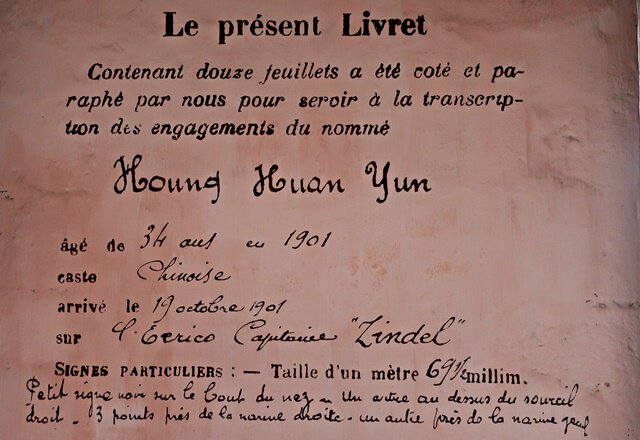 Le présent Livret
Contenant douze feuillets a été coté et pa-
raphé par nous pour servir à la transcrip-
tion des engagements du nommé
Houng Huan Yun
âgé de 34 ans en 1901
caste Chinoise
arrivé le 19 octobre 1901
sur L'Ecrico Capitaine "Zindel"
SIGNES PARTICULIERS : — Taille d'un mètre 69½ millim.
Petit signe noir sur le bout du nez - Un autre au dessus du sourcil
droit - 3 points près de la narine droite - un autre près de la narine